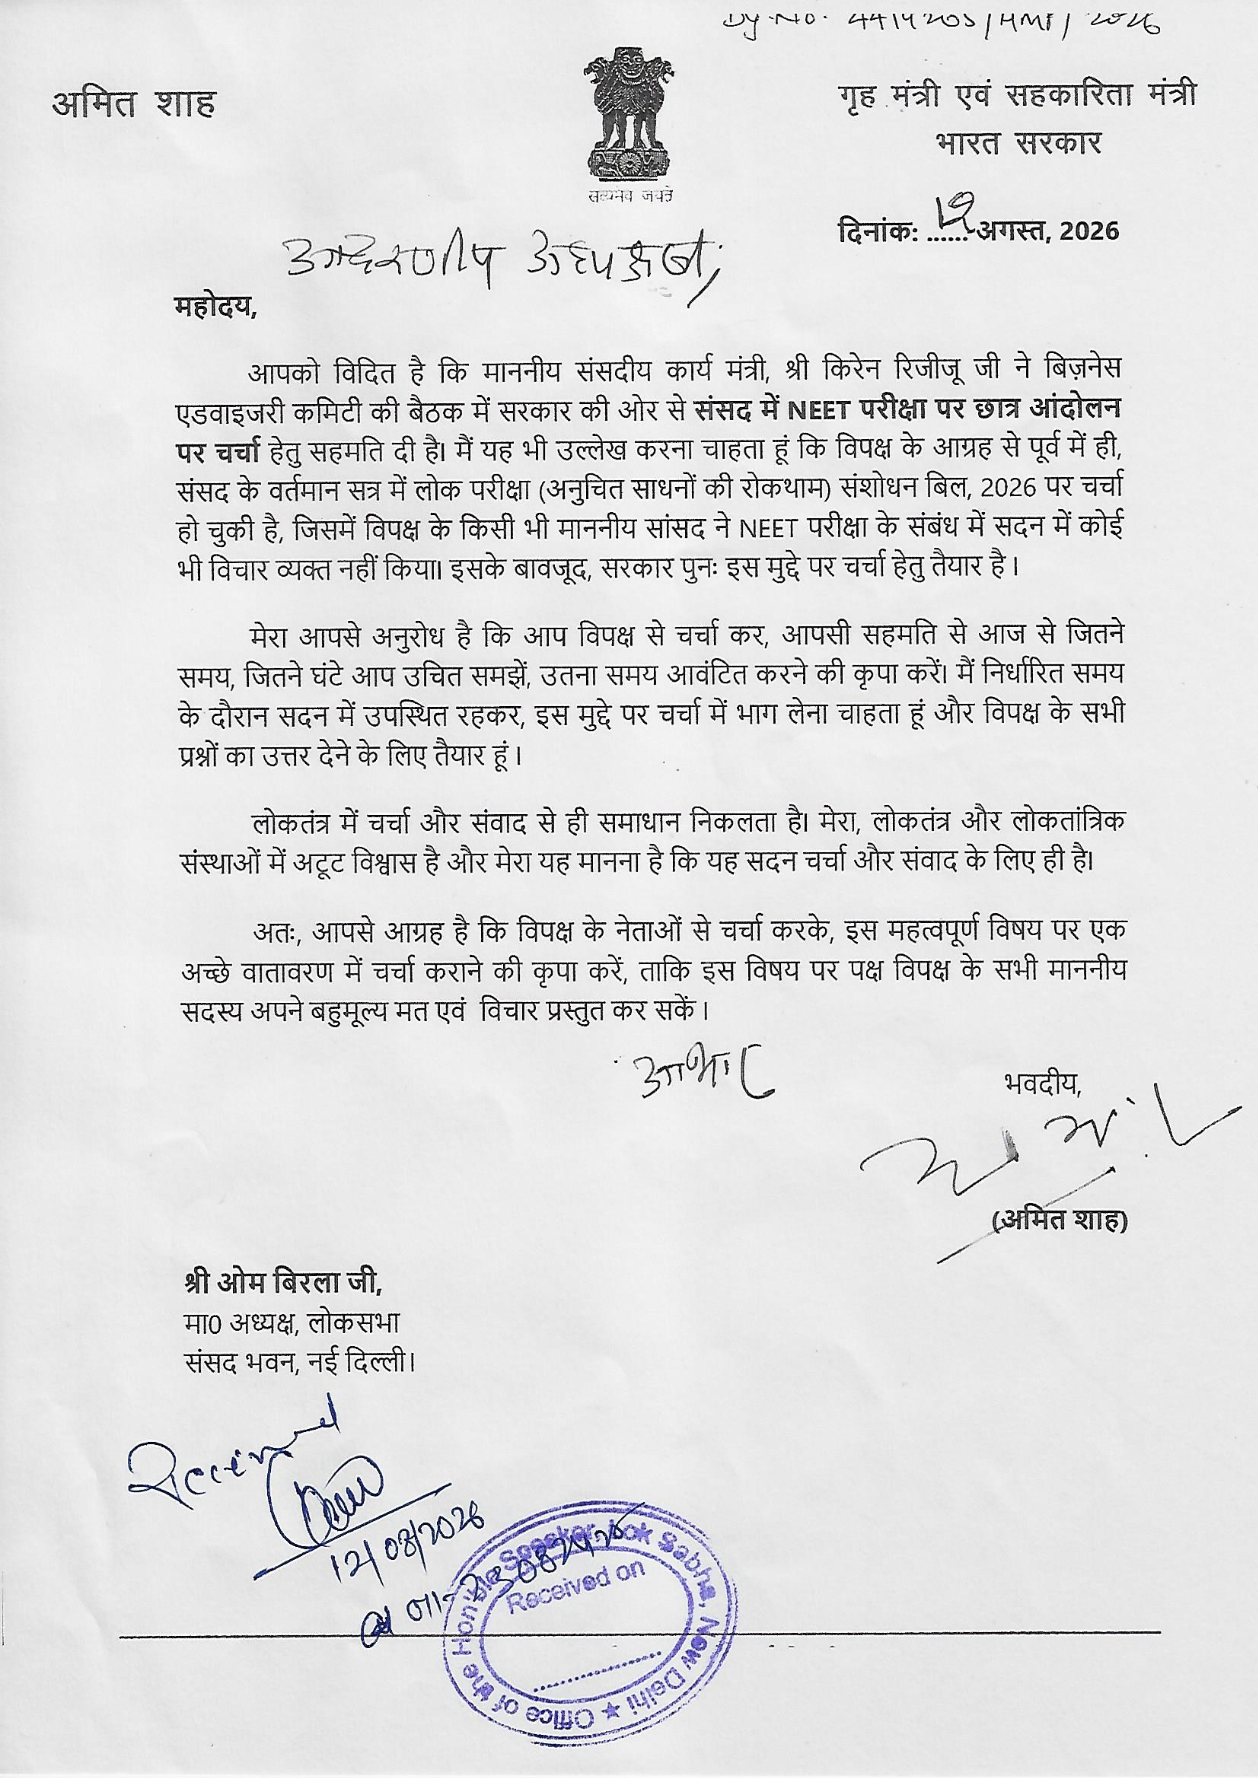 Dy. No. 4419203/HMP/2026
अमित शाह
सत्यमेव जयते
गृह मंत्री एवं सहकारिता मंत्री
भारत सरकार
दिनांक: 12 अगस्त, 2026
आदरणीय अध्यक्ष जी,
महोदय,
आपको विदित है कि माननीय संसदीय कार्य मंत्री, श्री किरेन रिजीजू जी ने बिज़नेस
एडवाइजरी कमिटी की बैठक में सरकार की ओर से संसद में NEET परीक्षा पर छात्र आंदोलन
पर चर्चा हेतु सहमति दी है। मैं यह भी उल्लेख करना चाहता हूं कि विपक्ष के आग्रह से पूर्व में ही,
संसद के वर्तमान सत्र में लोक परीक्षा (अनुचित साधनों की रोकथाम) संशोधन बिल, 2026 पर चर्चा
हो चुकी है, जिसमें विपक्ष के किसी भी माननीय सांसद ने NEET परीक्षा के संबंध में सदन में कोई
भी विचार व्यक्त नहीं किया। इसके बावजूद, सरकार पुनः इस मुद्दे पर चर्चा हेतु तैयार है।
मेरा आपसे अनुरोध है कि आप विपक्ष से चर्चा कर, आपसी सहमति से आज से जितने
समय, जितने घंटे आप उचित समझें, उतना समय आवंटित करने की कृपा करें। मैं निर्धारित समय
के दौरान सदन में उपस्थित रहकर, इस मुद्दे पर चर्चा में भाग लेना चाहता हूं और विपक्ष के सभी
प्रश्नों का उत्तर देने के लिए तैयार हूं।
लोकतंत्र में चर्चा और संवाद से ही समाधान निकलता है। मेरा, लोकतंत्र और लोकतांत्रिक
संस्थाओं में अटूट विश्वास है और मेरा यह मानना है कि यह सदन चर्चा और संवाद के लिए ही है।
अतः, आपसे आग्रह है कि विपक्ष के नेताओं से चर्चा करके, इस महत्वपूर्ण विषय पर एक
अच्छे वातावरण में चर्चा कराने की कृपा करें, ताकि इस विषय पर पक्ष विपक्ष के सभी माननीय
सदस्य अपने बहुमूल्य मत एवं विचार प्रस्तुत कर सकें।
आभार
भवदीय,
(अमित शाह)
श्री ओम बिरला जी,
मा0 अध्यक्ष, लोकसभा
संसद भवन, नई दिल्ली।
Received
12/08/2026
Office of the Hon'ble Speaker, Lok Sabha, New Delhi
Received on